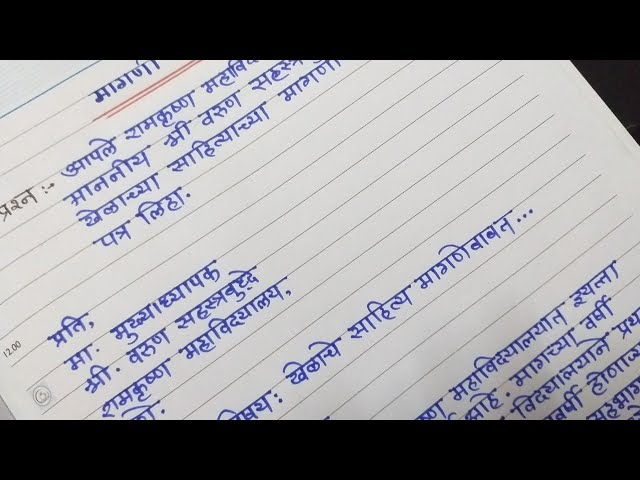 मागणी
प्रश्न :- आपले रामकृष्ण महाविद
माननीय श्री वरुण सहस्त्र
खेळाच्या साहित्याच्या मागणी
पत्र लिहा.
प्रति,
मा. मुख्याध्यापक
श्री. वरुण सहस्त्रबुद्दे
रामकृष्ण महाविद्यालय,
विषय: खेळाचे साहित्य मागणेबाबत...
महाविद्यालयात इयत्ता
आहे. मागच्या वर्षी
विद्यालयाने प्रथ
वर्षी होणाऱ्य
सहभाग
12.00